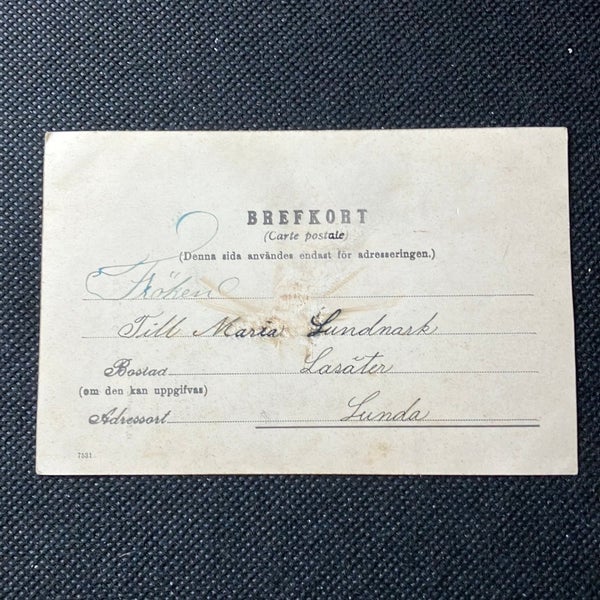 BREFKORT
(Carte postale)
(Denna sida användes endast för adresseringen.)
Fröken
Till Maria Lundnark
Bostad Lasäter
(om den kan uppgifvas)
Adressort Lunda
7531